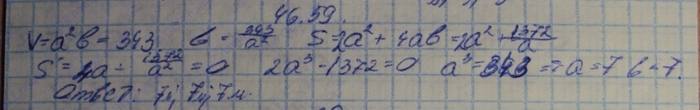 46.59.
V=a²b=343 b=343/a² S=2a²+4ab=2a²+1372/a
S'=4a-1372/a²=0 2a³-1372=0 a³=343 => a=7 b=7.
Ответ: 7м, 7м, 7м.